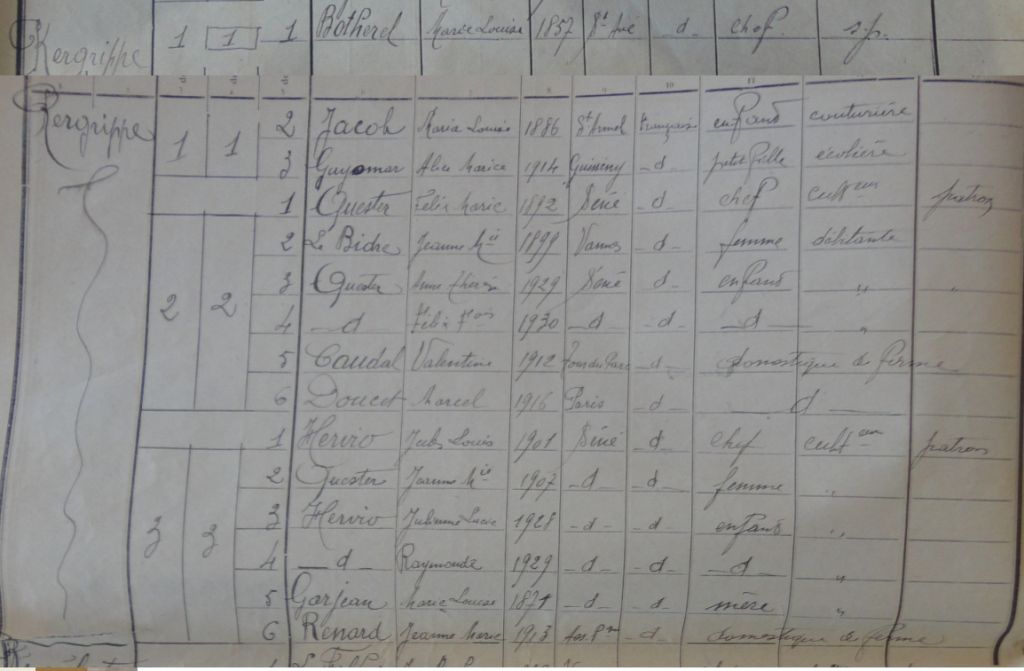 Kergrippe 1 1 1 Botherel Marie Louise 1857 d chef s.p.
Kergrippe 1 1
2 Jacob Maria Louise 1886 St Armel française enfant couturière
3 Guyomar Alice Marie 1914 d petite fille écolière
2 2
1 Quester Félix Marie 1892 Séné d chef cultteur patron
2 Le Bidre Jeanne Mie 1899 Vannes d femme débitante
3 Quester Anne Thérèse 1929 Séné d enfant "
4 d Félix Fois 1930 d d d "
5 Caudal Valentine 1912 Tour du Parc d domestique de ferme
6 Doucet Marcel 1916 Paris d d
3 3
1 Hervio Jules Louis 1901 Séné d chef cultteur patron
2 Quester Jeanne Mie 1907 d d femme "
3 Hervio Julienne Lucie 1928 d d enfant "
4 d Raymonde 1929 d d d "
5 Gorjean Marie Louise 1871 d d mère "
6 Renard Jeanne Marie 1913 d domestique de ferme